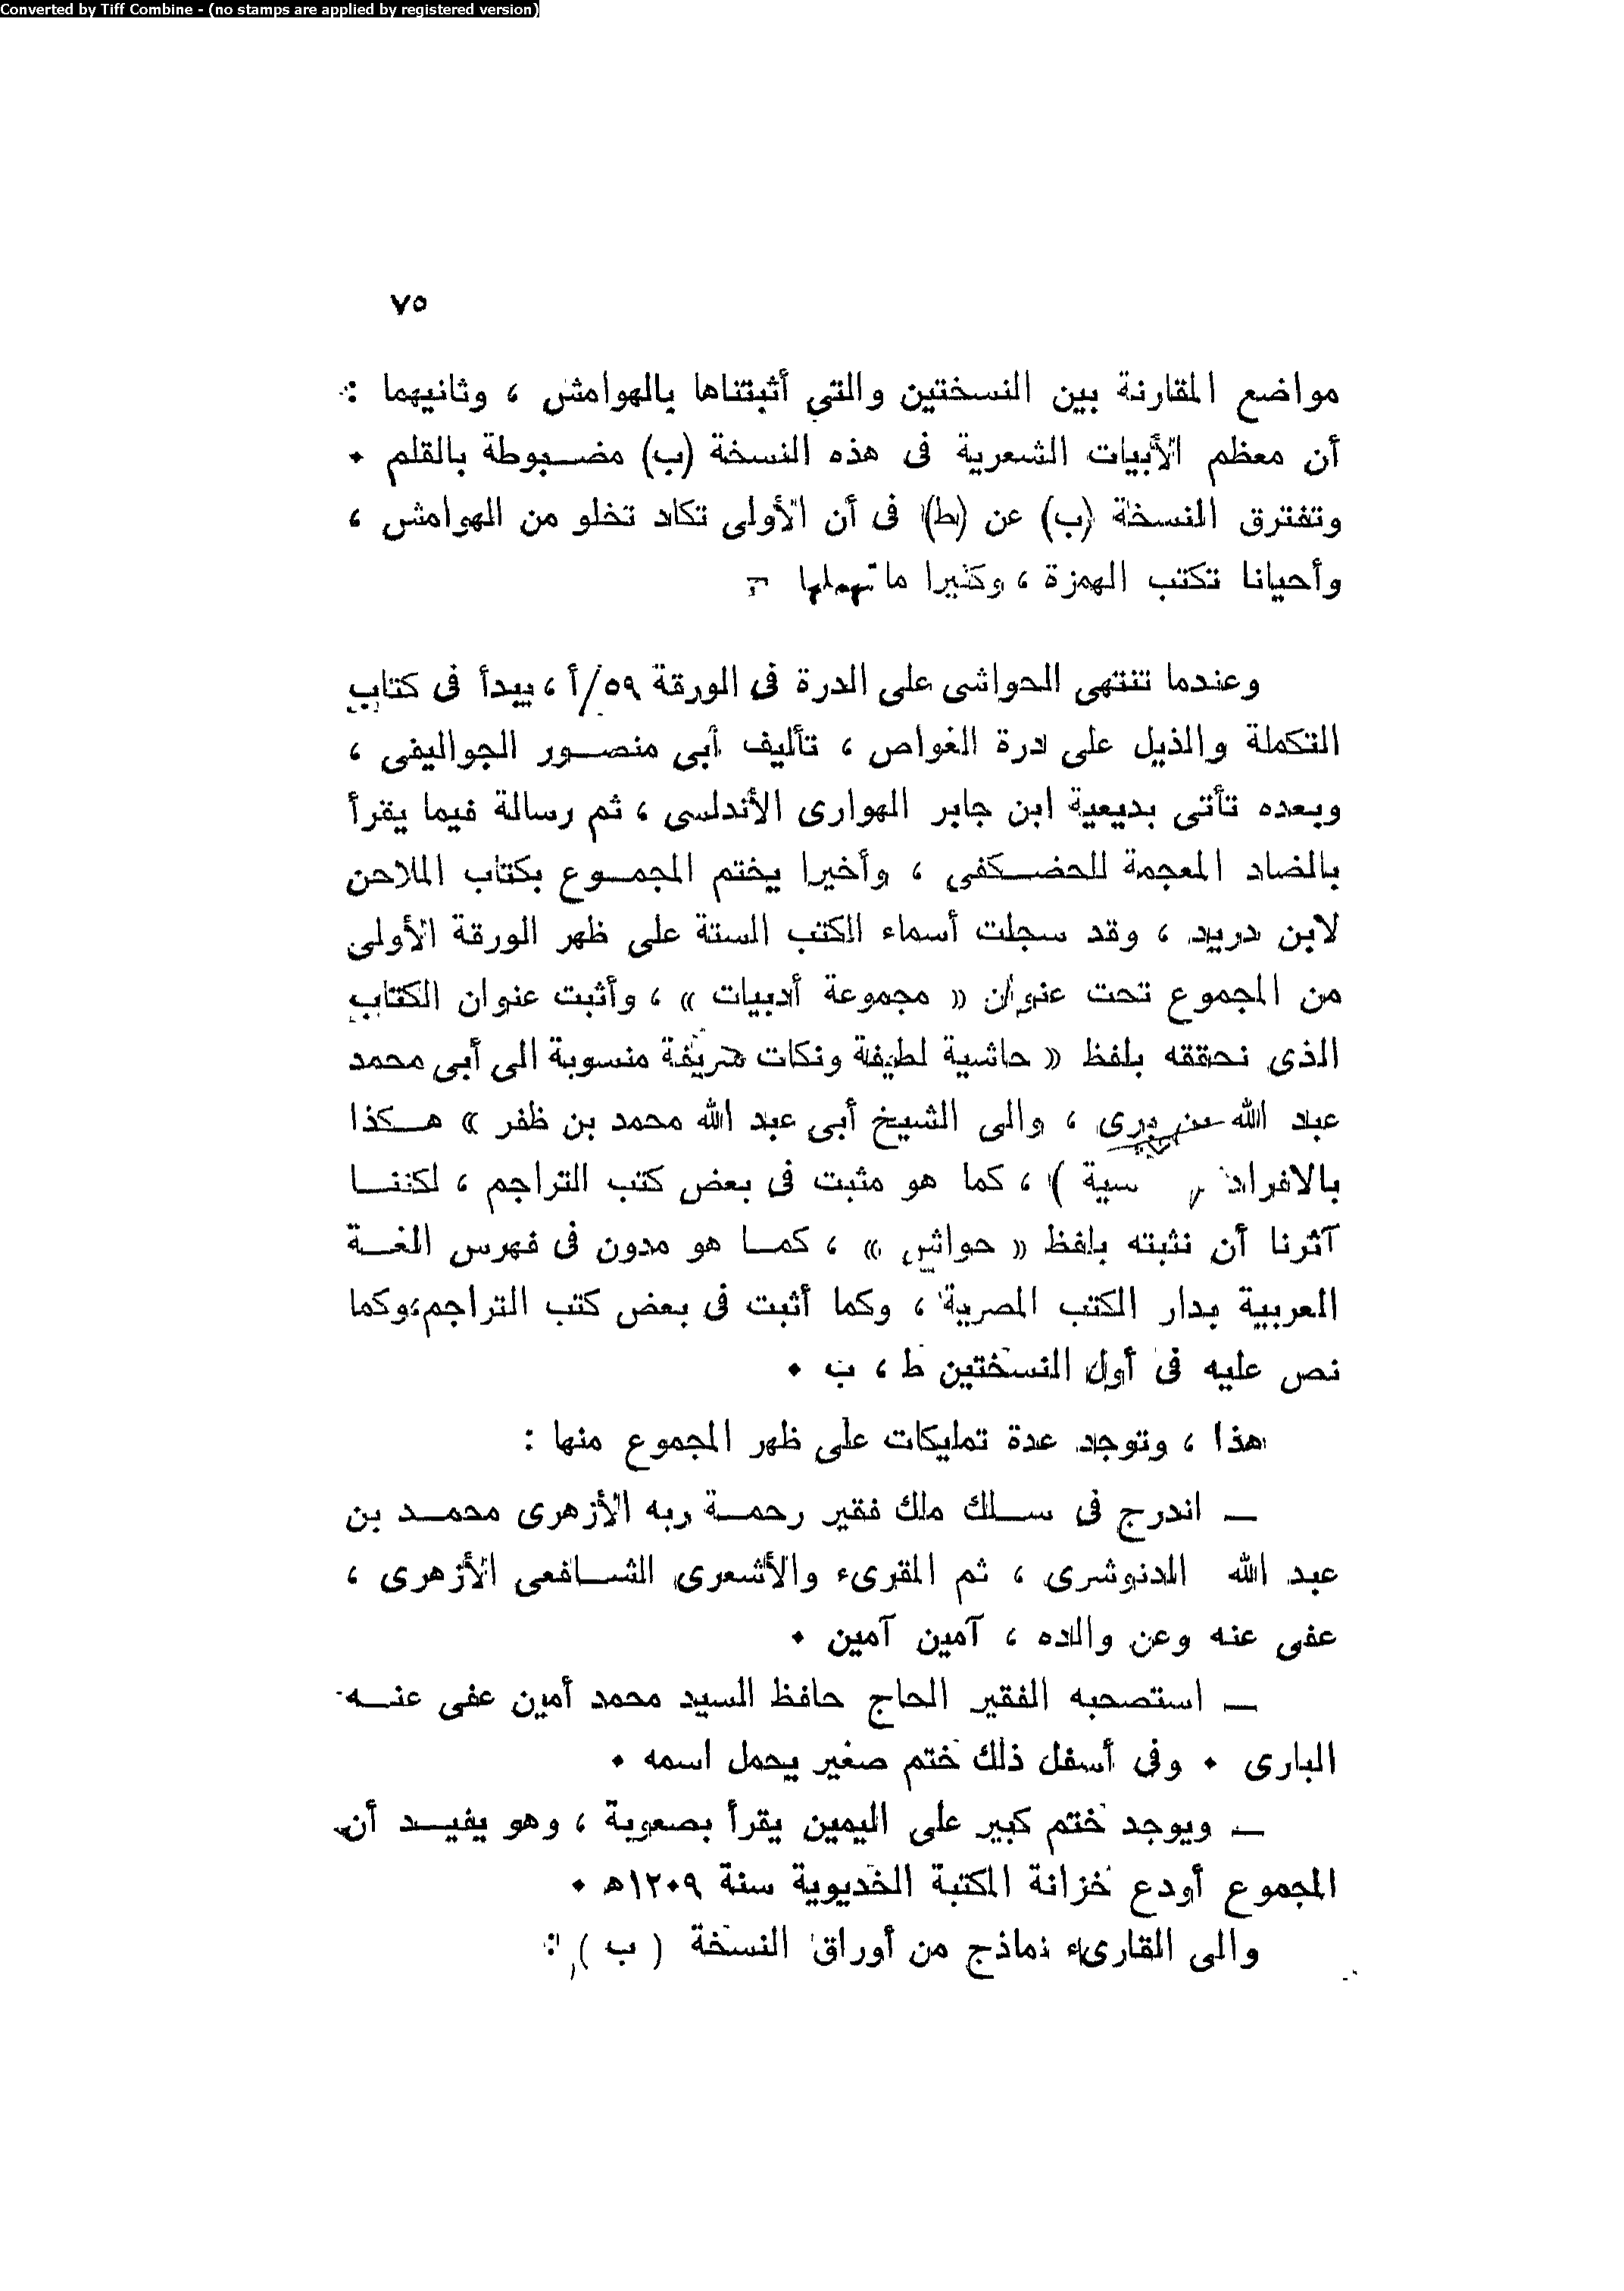 Converted by Tiff Combine - (no stamps are applied by registered version)
٧٥
مواضع المقارنة بين النسختين والتي أثبتناها بالهوامش ، وثانيهما :
أن معظم الأبيات الشعرية فى هذه النسخة (ب) مضبوطة بالقلم •
وتفترق النسخة (ب) عن (ط) فى أن الأولى تكاد تخلو من الهوامش ،
وأحيانا تكتب الهمزة ، وكثيرا ما تهملها
وعندما تنتهى الحواشى على الدرة فى الورقة ٥٩/أ ، يبدأ فى كتاب
التكملة والذيل على درة الغواص ، تأليف أبى منصور الجواليفى ،
وبعده تأتى بديعية ابن جابر الهوارى الأندلسى ، ثم رسالة فيما يقرأ
بالضاد المعجمة للحضكفى ، وأخيرا يختم المجموع بكتاب الملاحن
لابن دريد ، وقد سجلت أسماء الكتب الستة على ظهر الورقة الأولى
من المجموع تحت عنوان « مجموعة أدبيات » ، وأثبت عنوان الكتاب
الذى نحققه بلفظ « حاشية لطيفة ونكات شريفة منسوبة الى أبى محمد
عبد الله بن برى ، والى الشيخ أبى عبد الله محمد بن ظفر » هكذا
بالافراد سية ) ، كما هو مثبت فى بعض كتب التراجم ، لكننا
آثرنا أن نثبته بلفظ « حواش » ، كما هو مدون فى فهرس اللغة
العربية بدار الكتب المصرية ، وكما أثبت فى بعض كتب التراجم،وكما
نص عليه فى أول النسختين ط ، ب •
هذا ، وتوجد عدة تمليكات على ظهر المجموع منها :
— اندرج فى سلك ملك فقير رحمة ربه الأزهرى محمد بن
عبد الله الدنوشرى ، ثم المقرىء والأشعرى الشافعى الأزهرى ،
عفى عنه وعن والده ، آمين آمين •
— استصحبه الفقير الحاج حافظ السيد محمد أمين عفى عنه
البارى • وفى أسفل ذلك ختم صغير يحمل اسمه •
— ويوجد ختم كبير على اليمين يقرأ بصعوبة ، وهو يفيد أن
المجموع أودع خزانة المكتبة الخديوية سنة ١٢٠٩ه •
والى القارىء نماذج من أوراق النسخة ( ب ) :